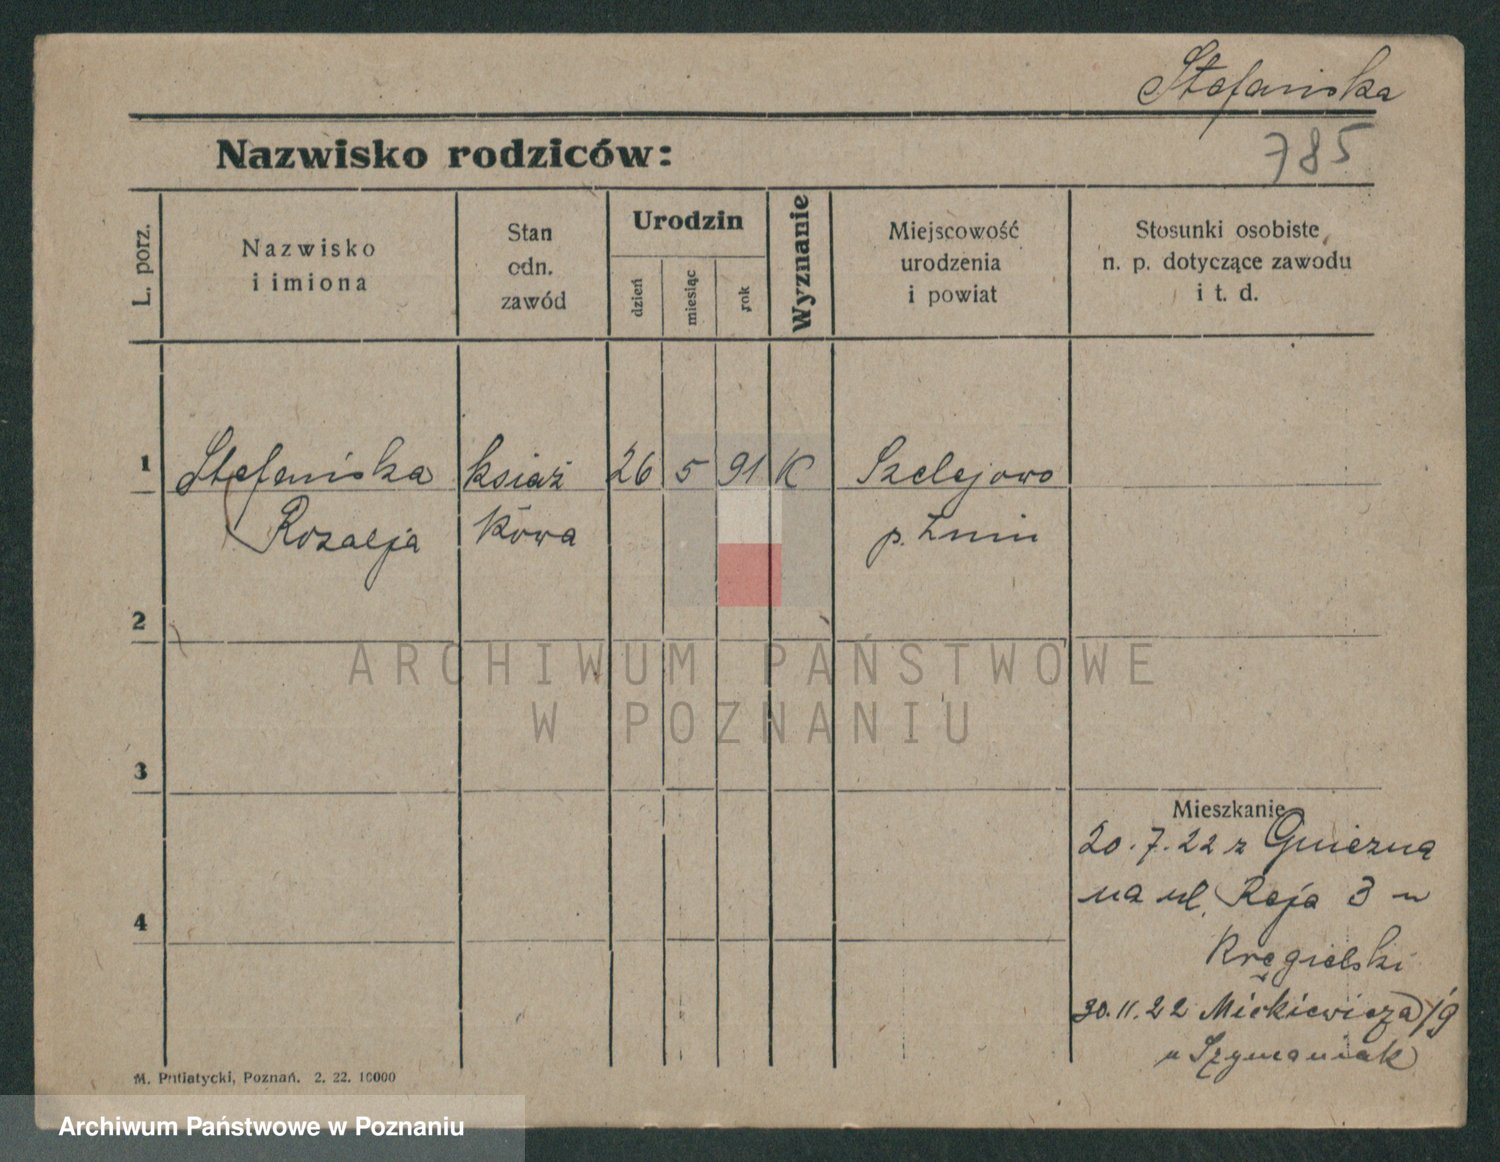 Stefańska
785
Nazwisko rodziców:
L. porz.
Nazwisko
i imiona
Stan
odn.
zawód
Urodzin
dzień
miesiąc
rok
Wyznanie
Miejscowość
urodzenia
i powiat
Stosunki osobiste
n. p. dotyczące zawodu
i t. d.
1 Stefańska książ 26 5 91 K Szelejowo
Rozalja kowa p. Żnin
2
ARCHIWUM PAŃSTWOWE
W POZNANIU
3
Mieszkanie
20.7.22 z Gniezna
na ul. Reja 3 u
4
Kręgielski
30.11.22 Mickiewicza
u Szymaniak
M. Putiatycki, Poznań. 2. 22. 10000
Archiwum Państwowe w Poznaniu